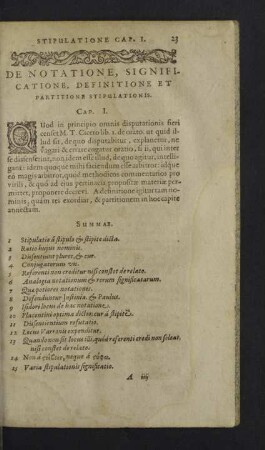 STIPULATIONE CAP. I. 23
DE NOTATIONE, SIGNIFI-
CATIONE, DEFINITIONE ET
PARTITIONE STIPULATIONIS.
CAP. I.
QUod in principio omnis disputationis fieri
censet M. T. Cicero lib. 1. de orato. ut quid il-
lud sit, de quo disputabitur, explanetur, ne
vagari & errare cogatur oratio, si ii, qui inter
se dissenserint, non idem esse illud, de quo agitur, intelli-
gant: idem quoque mihi faciendum esse arbitror: idque
eo magis arbitror, quod methodicum commentarios pro
viribus, & quod ad eius pertinacia prospicitur materia per-
mittet, proponere decrevi. A definitione igitur tam no-
minis, quam rei exordiar, & partitionem in hoc capite
annectam.
SUMMAE.
1 Stipulatio à stipulo & stipite dicta.
2 Ratio huius nominis.
3 Dissentiunt plures, & cur.
4 Conjugatorum vis.
5 Referenti non creditur nisi constet de relato.
6 Analogia notationum & rerum significatarum.
7 Quae potiores notationes.
8 Defenduntur Justinia. & Paulus.
9 Isidori locus de hac notatione.
10 Placentini optima dictio: cur à stipite.
11 Dissentientium refutatio.
12 Locus Varronis expenditur.
13 Quando non sit locus illi, quòd referenti credi non soleat,
nisi constet de relato.
14 Non à
15 Varia stipulationis significatio.
A iiij